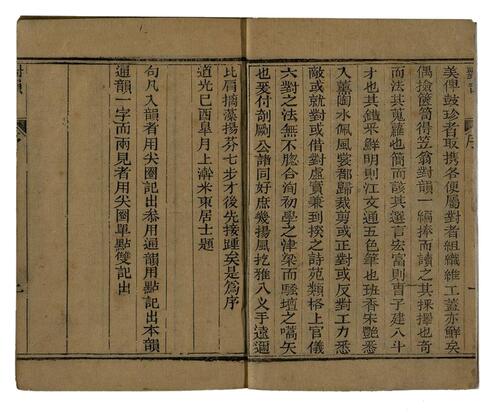 美傳鼓珍者取攜各便屬對者組織維工蓋亦鮮矣
偶撿篋笥得笠翁對韻一編捧而讀之其採擇也奇
而法其蒐羅也簡而該其選言宏富則曹子建八斗
才也其鐵采鮮明則江文通五色筆也班香宋艷悉
入薰陶水佩風裳都歸裁剪或正對或反對工力悉
敵或就對或借對虛實兼到揆之詩苑類格上官儀
六對之法無不脗合洵初學之津梁而騷壇之嚆矢
也爰付剞劂公諸同好庶幾揚風扢雅八义手遠邇
比肩摛藻揚芬七步才後先接踵矣是為序
道光己酉臯月上澣米東居士題
句凡入韻者用尖圈記出叅用通韻用點記出本韻
通韻一字而兩見者用尖圈單點雙記出
對韻